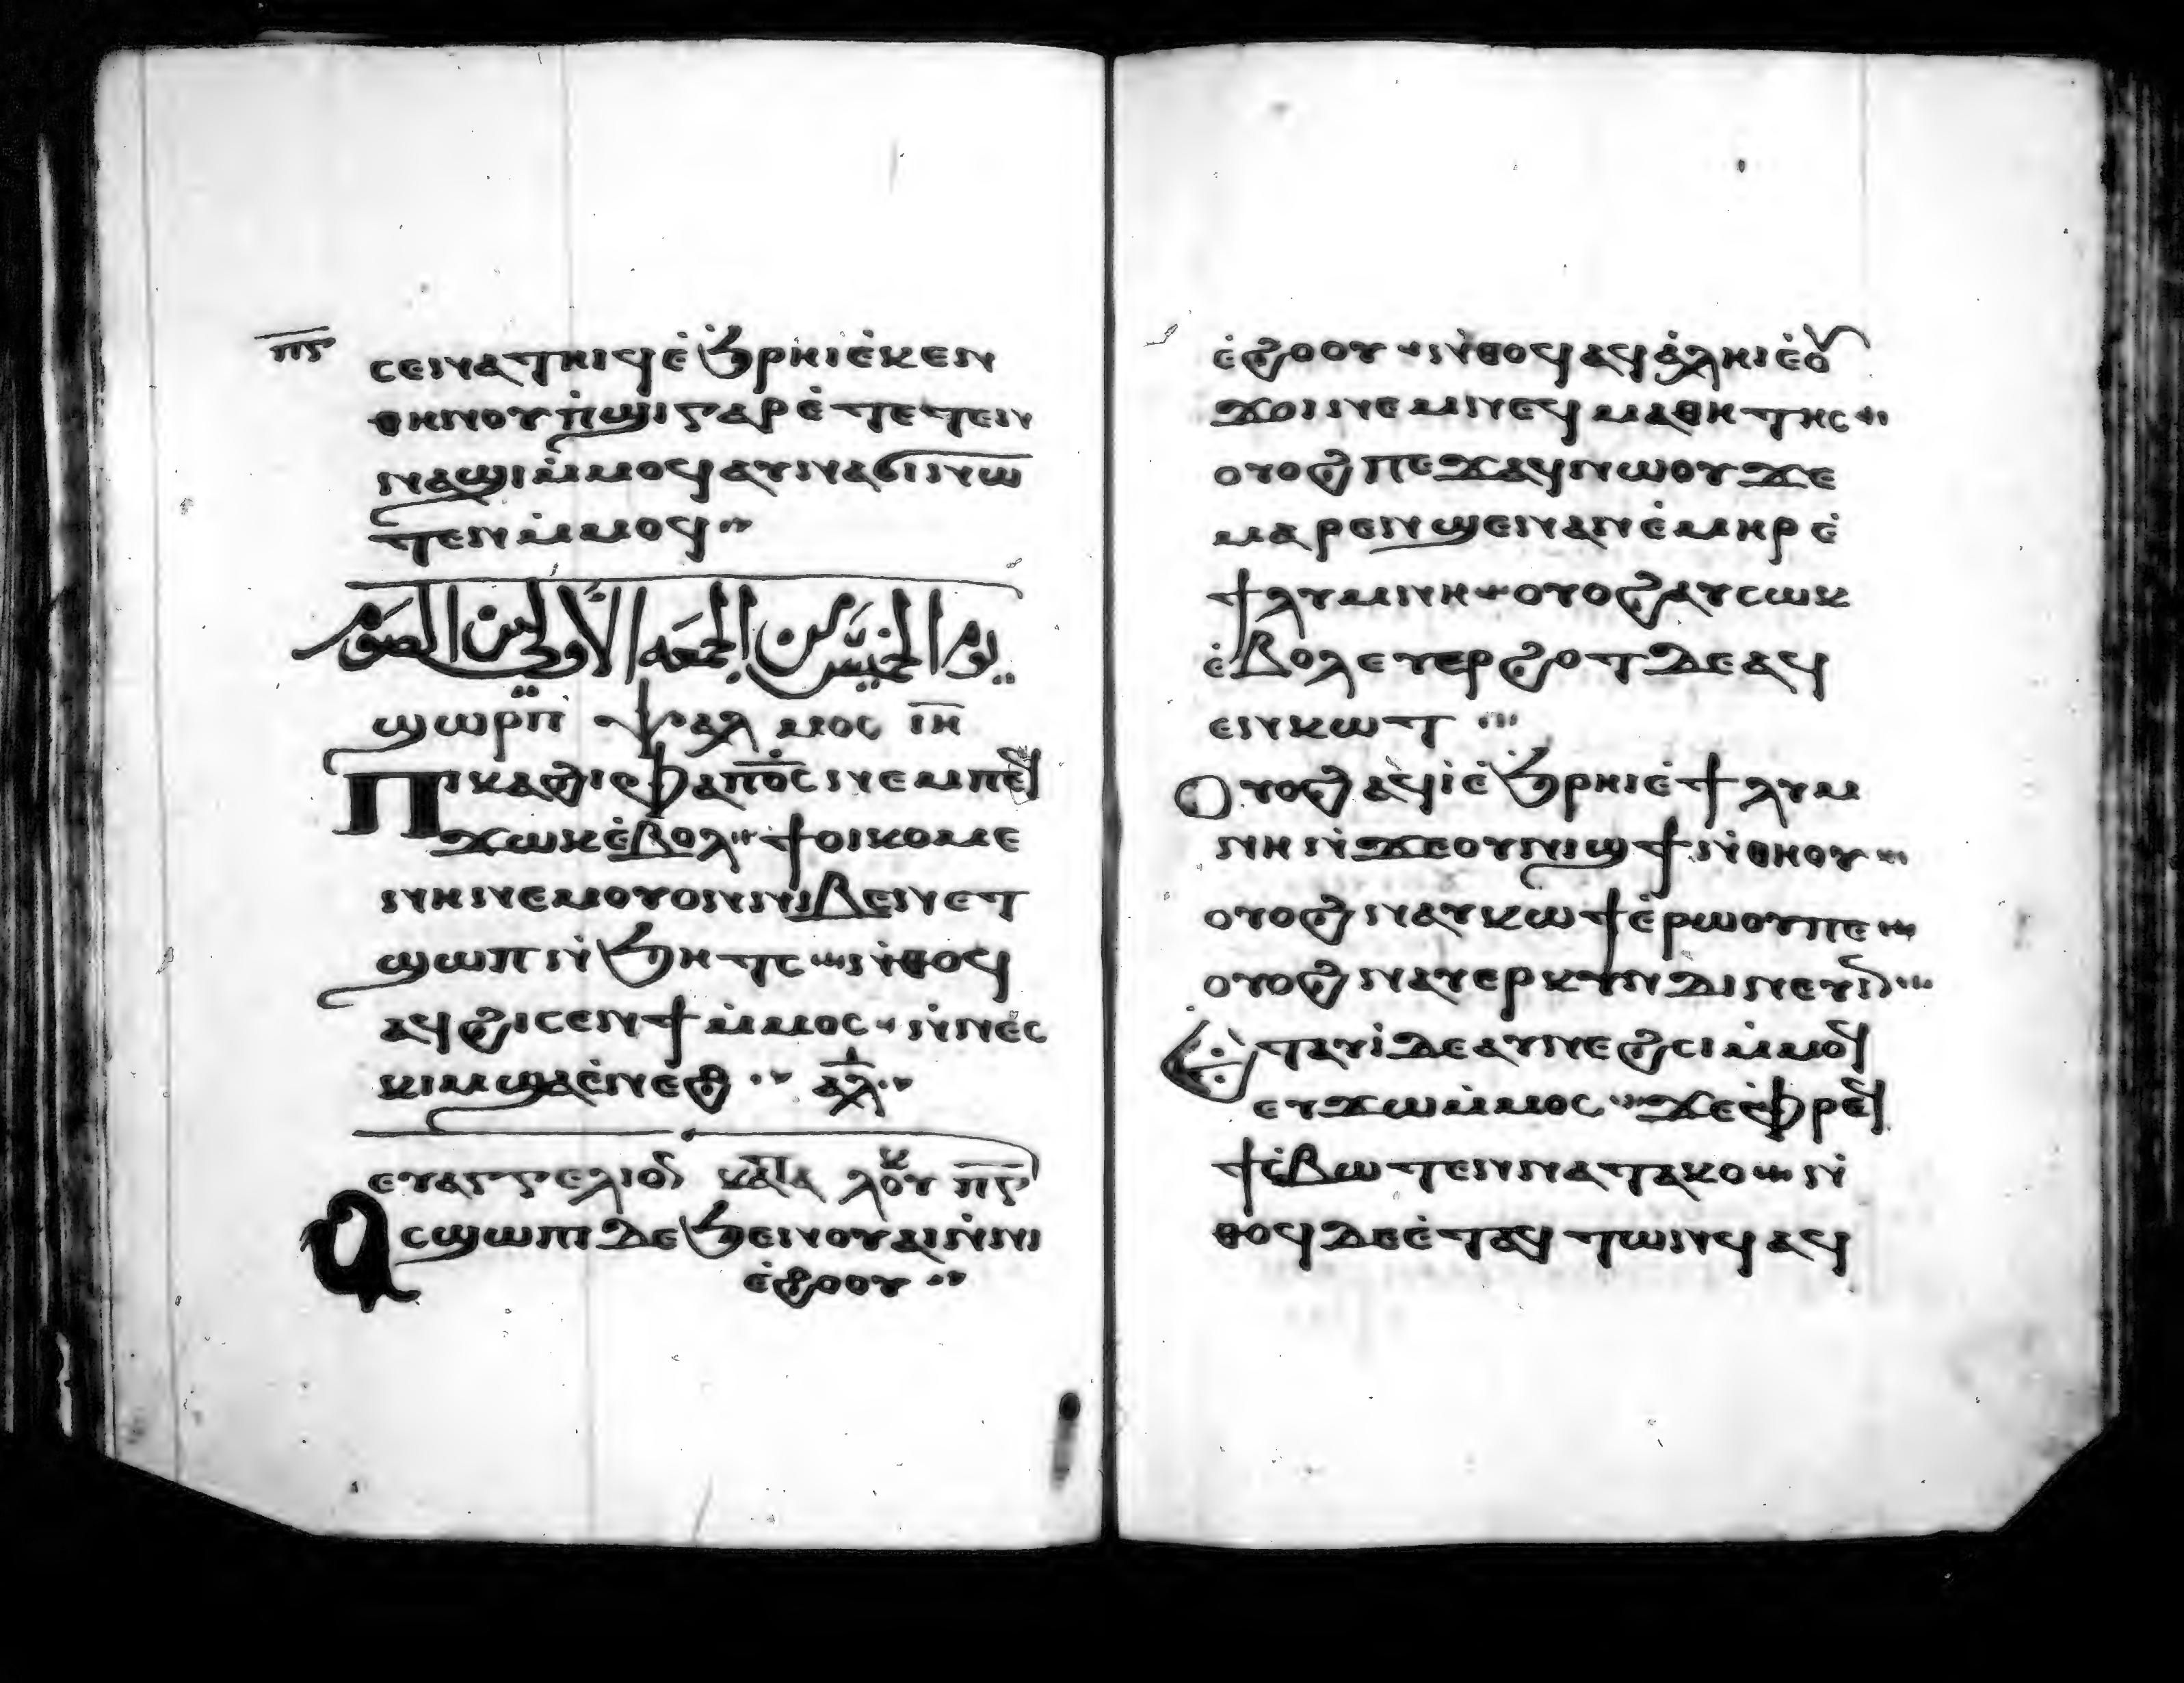 ⲡⲋ
ⲥⲉⲛⲁⲧⲏⲓϥ ⲉ̇ϧ̇ⲣⲏⲓ ⲉ̇ⲕⲉⲛ
ⲑⲏⲛⲟⲩ ⲡ̇ϣⲓ ⲅⲁⲣ ⲉ̇ⲧⲉⲧⲉⲛ
ⲛⲁϣⲓ ⲙ̇ⲙⲟϥ ⲁⲩⲛⲁϭⲓ ⲛⲱ
ⲧⲉⲛ ⲙ̇ⲙⲟϥ
يوم الخميس من الجمعه الاولى من الصوم
ϣⲱⲣⲡ ⲯⲁⲗⲙⲟⲥ ⲓⲏ
Ⲡⲓⲕⲁϩⲓ ⲫⲁ ⲡⲟ̅ⲥ̅ ⲛⲉⲙ ⲡⲉϥ
ϫⲱⲕ ⲉ̇ⲃⲟⲗ ϯⲟⲓⲕⲟⲙⲉ
ⲛⲏ ⲛⲉⲙ ⲟⲩⲟⲛ ⲛⲓⲃⲉⲛ ⲉⲧ
ϣⲱⲡ ⲛ̇ϧⲏⲧⲥ ⲛ̇ⲑⲟϥ
ⲁϥϩⲓⲥⲉⲛϯ ⲙ̇ⲙⲟⲥ ⲛ̇ⲛⲉⲥ
ⲕⲓⲙ ϣⲁ ⲉ̇ⲛⲉϩ ⲁⲗ
ⲉⲩⲁⲅⲅⲉⲗⲓⲟⲛ ⲕⲁⲧⲁ ⲗⲟⲩⲕ ⲡⲅ
Ⲁⲥϣⲱⲡⲓ ⲇⲉ ϧⲉⲛ ⲟⲩⲁⲓ ⲛ̇ⲛⲓ
ⲉ̇ϩⲟⲟⲩ
ⲉ̇ϩⲟⲟⲩ ⲛ̇ⲑⲟϥ ⲁϥⲁ̇ⲗⲏⲓ ⲉ̇ⲟⲩ
ϫⲟⲓ ⲛⲉⲙ ⲛⲉϥⲙⲁⲑⲏⲧⲏⲥ
ⲟⲩⲟϩ ⲡⲉϫⲁϥ ⲛⲱⲟⲩ ϫⲉ
ⲙⲁⲣⲉⲛϣⲉⲛⲁⲛ ⲉ̇ⲙⲏⲣ ⲉ̇
ϯⲗⲩⲙⲛⲏ ⲟⲩⲟϩ ⲁⲩⲥⲱⲕ
ⲉ̇ⲃⲟⲗ ⲉⲩⲉⲣϩⲟⲧ ⲇⲉ ⲁϥ
ⲉⲛⲕⲟⲧ
Ⲟⲩⲟϩ ⲁϥⲓ̇ ⲉ̇ϧⲣⲏⲓ ⲉ̇ϯⲗⲩⲙ
ⲛⲏ ⲛ̇ϫⲉ ⲟⲩⲛⲓϣϯ ⲛ̇ⲑⲏⲟⲩ
ⲟⲩⲟϩ ⲛⲁⲩⲕⲱϯ ⲉ̇ⲣⲱⲟⲩⲡⲉ
ⲟⲩⲟϩ ⲛⲁⲩⲉⲣⲕⲩⲛⲇⲓⲛⲉⲩⲓⲛ
Ⲉⲧⲁⲩⲓ̇ ⲇⲉ ⲁⲩⲛⲉϩⲥⲓ ⲙ̇ⲙⲟϥ
ⲉⲩϫⲱ ⲙ̇ⲙⲟⲥ ϫⲉ ⲫⲣⲉϥ
ϯⲥ̇ⲃⲱ ⲧⲉⲛⲛⲁⲧⲁⲕⲟ ⲛ̇
ⲑⲟϥ ⲇⲉ ⲉ̇ⲧⲁϥⲧⲱⲛϥ ⲁϥ